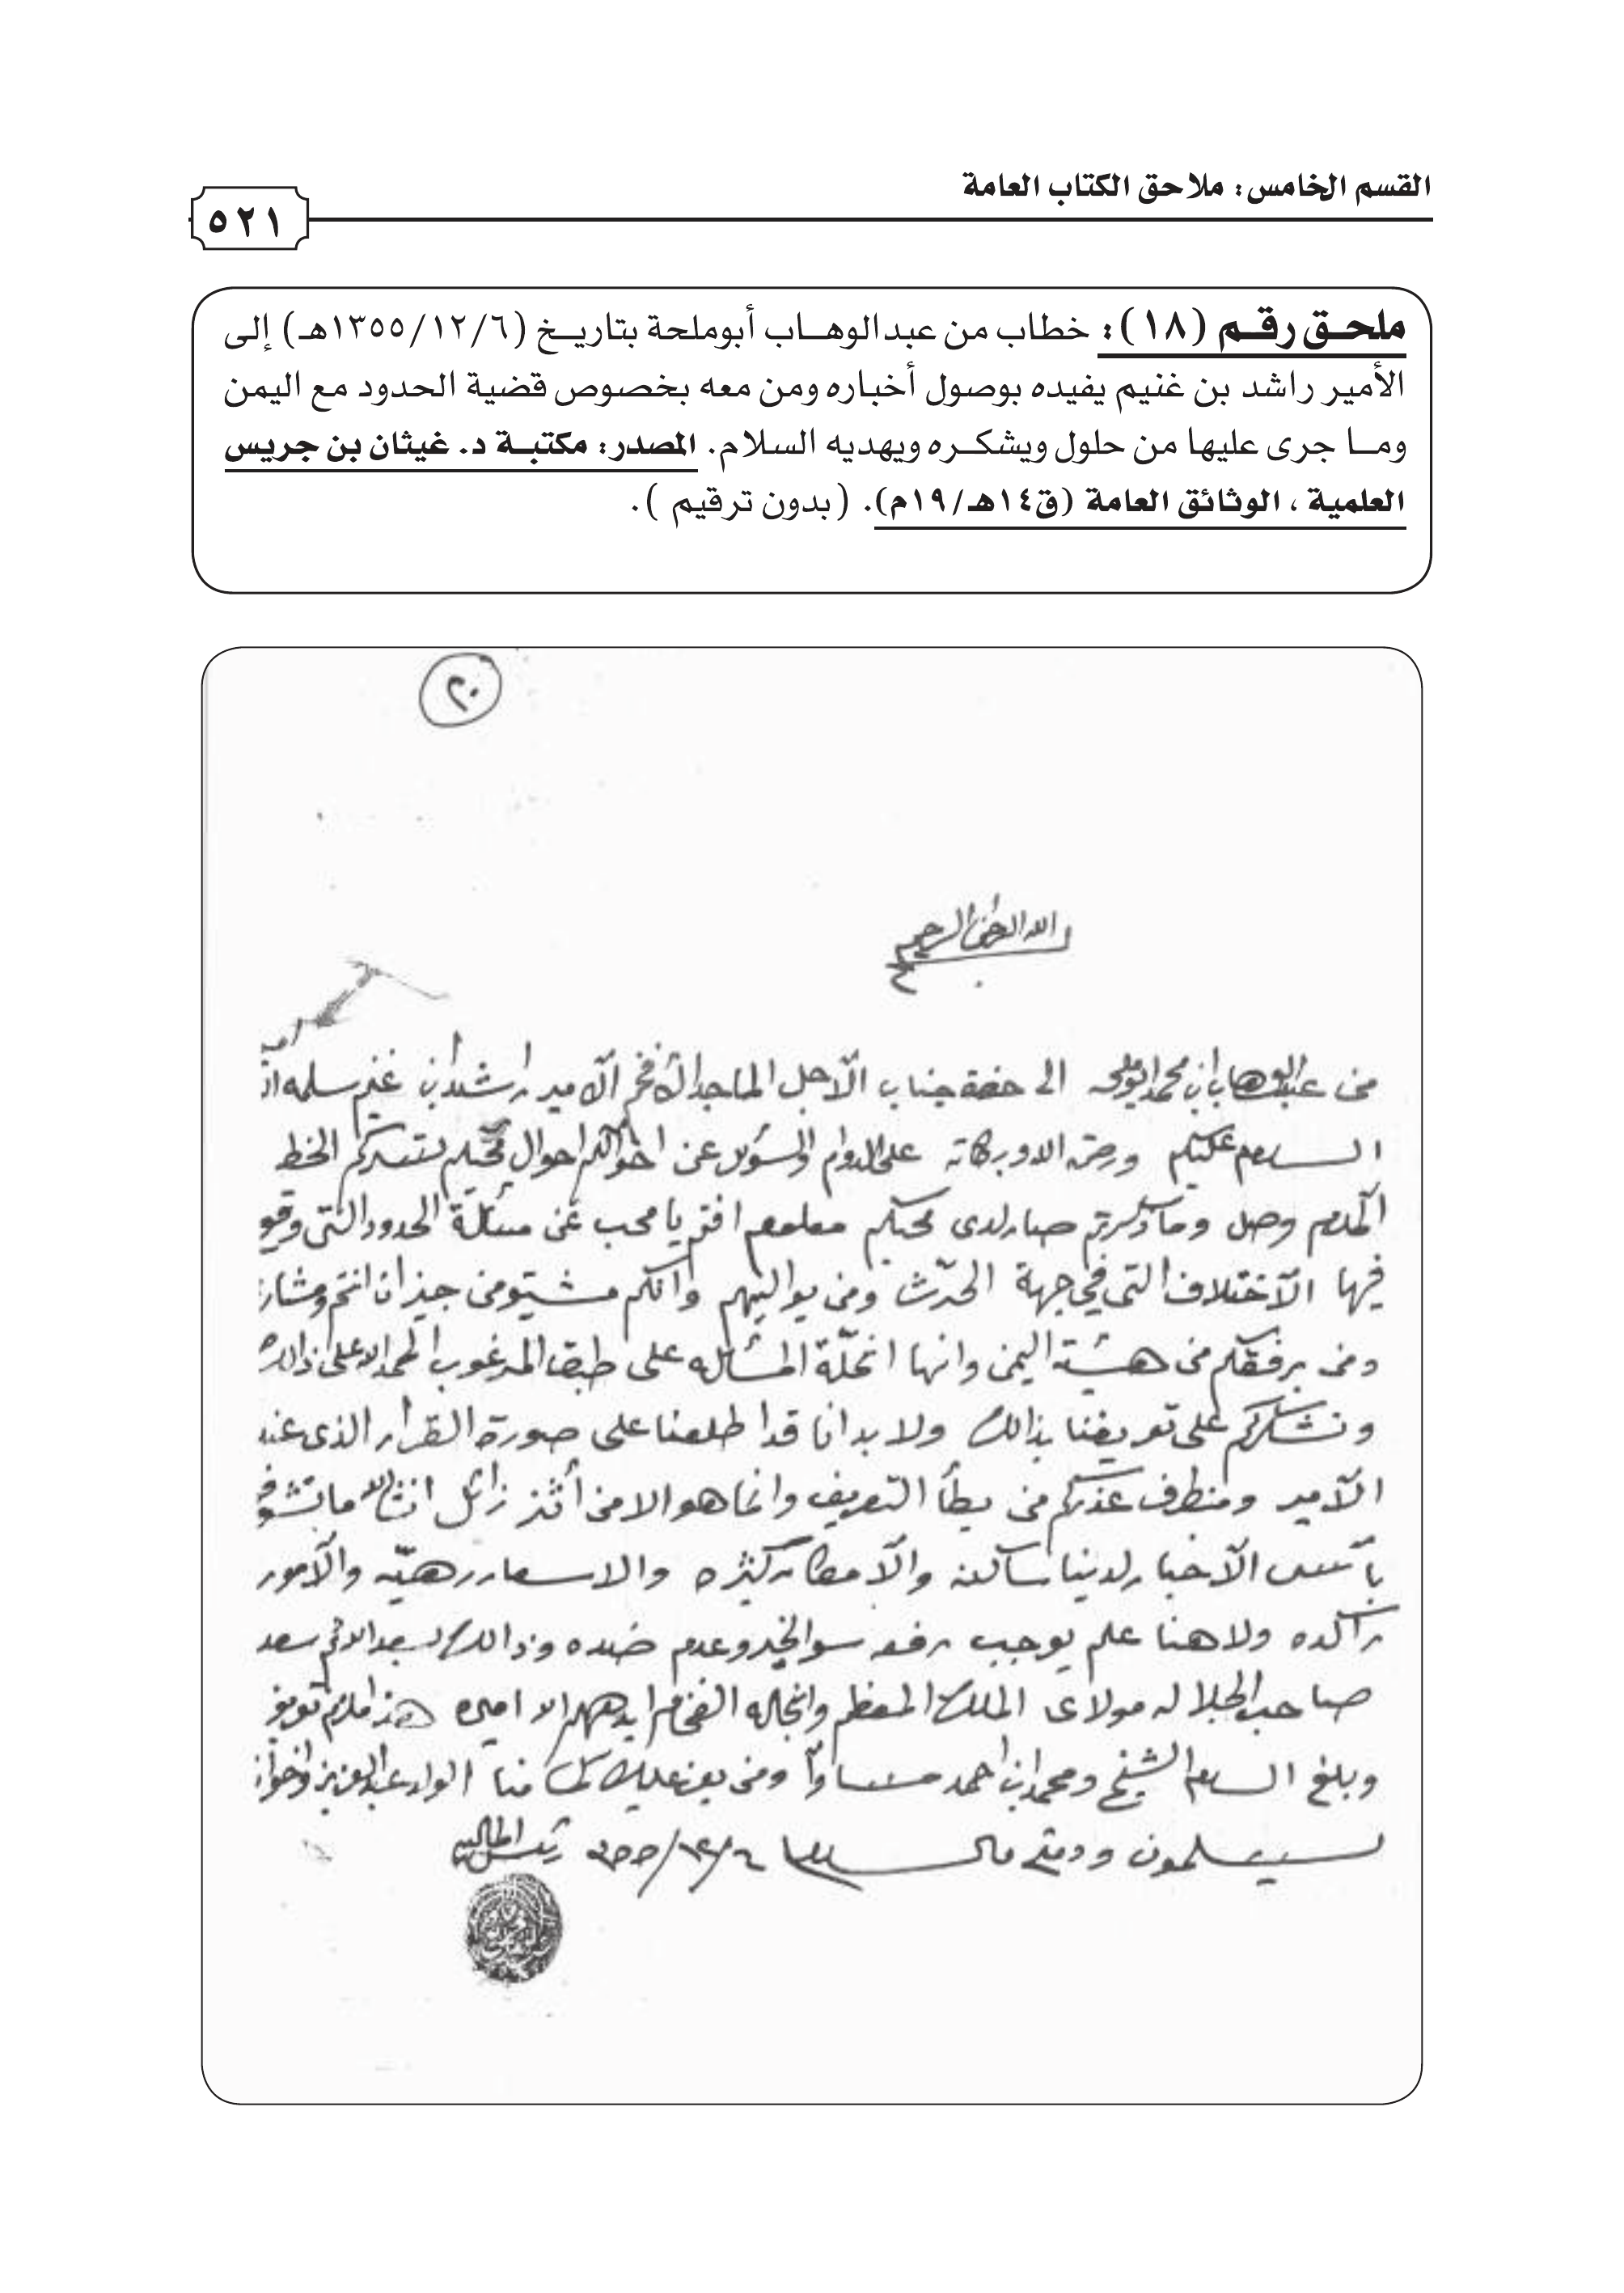 القسم الخامس: ملاحق الكتاب العامة
٥٢١
ملحق رقم (١٨): خطاب من عبدالوهاب أبوملحة بتاريخ (١٣٥٥/١٢/٦هـ) إلى
الأمير راشد بن غنيم يفيده بوصول أخباره ومن معه بخصوص قضية الحدود مع اليمن
وما جرى عليها من حلول ويشكره ويهديه السلام. المصدر: مكتبة د. غيثان بن جريس
العلمية ، الوثائق العامة (ق١٤هـ/١٩م). (بدون ترقيم ).
٢٠
بسم الله الرحمن الرحيم
من عبدالوهاب ابن محمد ابوملحه الى حضة جناب الآجل الماجد الأفخم الآمير راشد ابن غنيم سلمه
السلام عليكم ورحمة الله وبركاته على الدوام والسؤل عن احوالكم احوال محبكم تسركم الخط
المكرم وصل وما ذكرتم صار لدى محبكم معلوم افدتم يا محب عن مسئلة الحدود التي وقع
فيها الآختلاف التي في جهة الحرّث ومن يواليهم وانكم مشيتو من جيزان انتم ومشار
ومن برفقكم من هيئة اليمن وانها انحلّة المسأله على طبق المرغوب الحمدالله على ذالك
ونشكركم على تعريفنا بذالك ولا بد انا قد اطلعنا على صورة القرار الذي عند
الآمير ومنطرف عذركم من بطأ التعريف وانما هو الا من زائل انشاالله ما تشوفو
بأس الآخبار لدينا ساكنه والآمطار كثيره والاسعار رهيّه والآمور
راكده ولا هنا علم يوجب رفعه سوا الخير وعدم ضده وذالك بسعد الله ثم سعد
صاحب الجلاله مولاى الملك المعظم وانجاله الفخام ايدهم الله امين هذا مالزم تعريفه
وبلغ السلام الشيخ ومحمد ابن احمد ومن يعز عليك كما منا الولد عبدالعزيز واخوانه
يسلمون ودمتم ٦/١٢/٣٥٥ رئيس الماليه